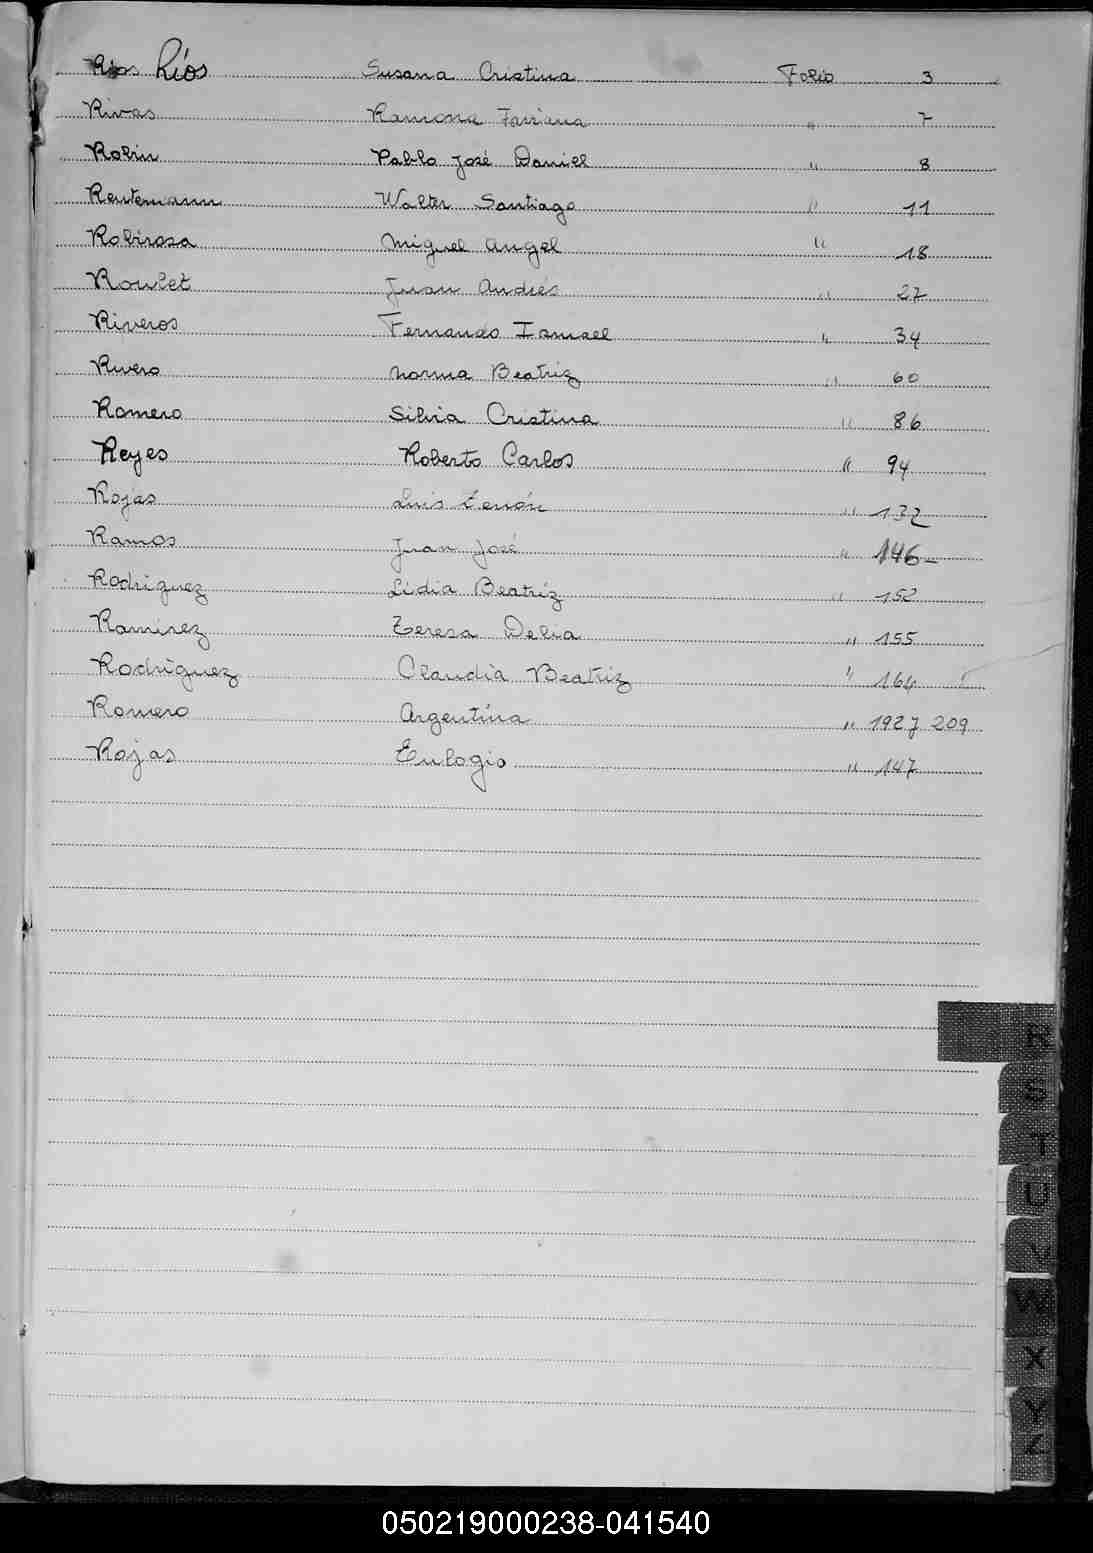 Rios Ríos Susana Cristina Folio 3
Rivas Ramona Fabiana " 7
Robin Pablo José Daniel " 8
Reutemann Walter Santiago " 11
Robirosa Miguel Angel " 18
Roulet Juan Andrés " 27
Riveros Fernando Ismael " 34
Rivero Norma Beatriz " 60
Romero Silvia Cristina " 86
Reyes Roberto Carlos " 94
Rojas Luis Zenón " 132
Ramos Juan José " 146-
Rodriguez Lidia Beatriz " 152
Ramirez Teresa Delia " 155
Rodriguez Claudia Beatriz " 164
Romero Argentina " 192 y 209
Rojas Eulogio " 147
R
S
T
U
V
W
X
Y
Z
050219000238-041540